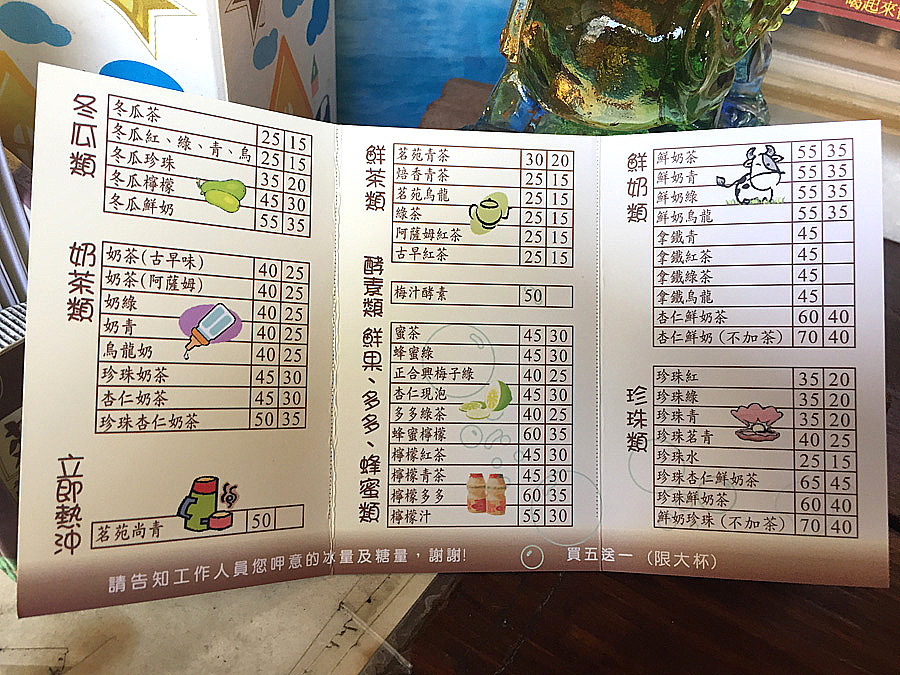 喝起來
冬瓜類
冬瓜茶 25 15
冬瓜紅、綠、青、烏 25 15
冬瓜珍珠 35 20
冬瓜檸檬 45 30
冬瓜鮮奶 55 35
奶茶類
奶茶(古早味) 40 25
奶茶(阿薩姆) 40 25
奶綠 40 25
奶青 40 25
烏龍奶 40 25
珍珠奶茶 45 30
杏仁奶茶 45 30
珍珠杏仁奶茶 50 35
立即熱沖
茗苑尚青 50
鮮茶類
茗苑青茶 30 20
焙香青茶 25 15
茗苑烏龍 25 15
綠茶 25 15
阿薩姆紅茶 25 15
古早紅茶 25 15
酵素類
梅汁酵素 50
鮮果、多多、蜂蜜類
蜜茶 45 30
蜂蜜綠 45 30
正合興梅子綠 40 25
杏仁現泡 45 30
多多綠茶 40 25
蜂蜜檸檬 60 35
檸檬紅茶 45 30
檸檬青茶 45 30
檸檬多多 60 35
檸檬汁 55 30
鮮奶類
鮮奶茶 55 35
鮮奶青 55 35
鮮奶綠 55 35
鮮奶烏龍 55 35
拿鐵青 45
拿鐵紅茶 45
拿鐵綠茶 45
拿鐵烏龍 45
杏仁鮮奶茶 60 40
杏仁鮮奶(不加茶) 70 40
珍珠類
珍珠紅 35 20
珍珠綠 35 20
珍珠青 35 20
珍珠茗青 40 25
珍珠水 25 15
珍珠杏仁鮮奶茶 65 45
珍珠鮮奶茶 60 40
鮮奶珍珠(不加茶) 70 40
請告知工作人員您呷意的冰量及糖量，謝謝!
買五送一 (限大杯)